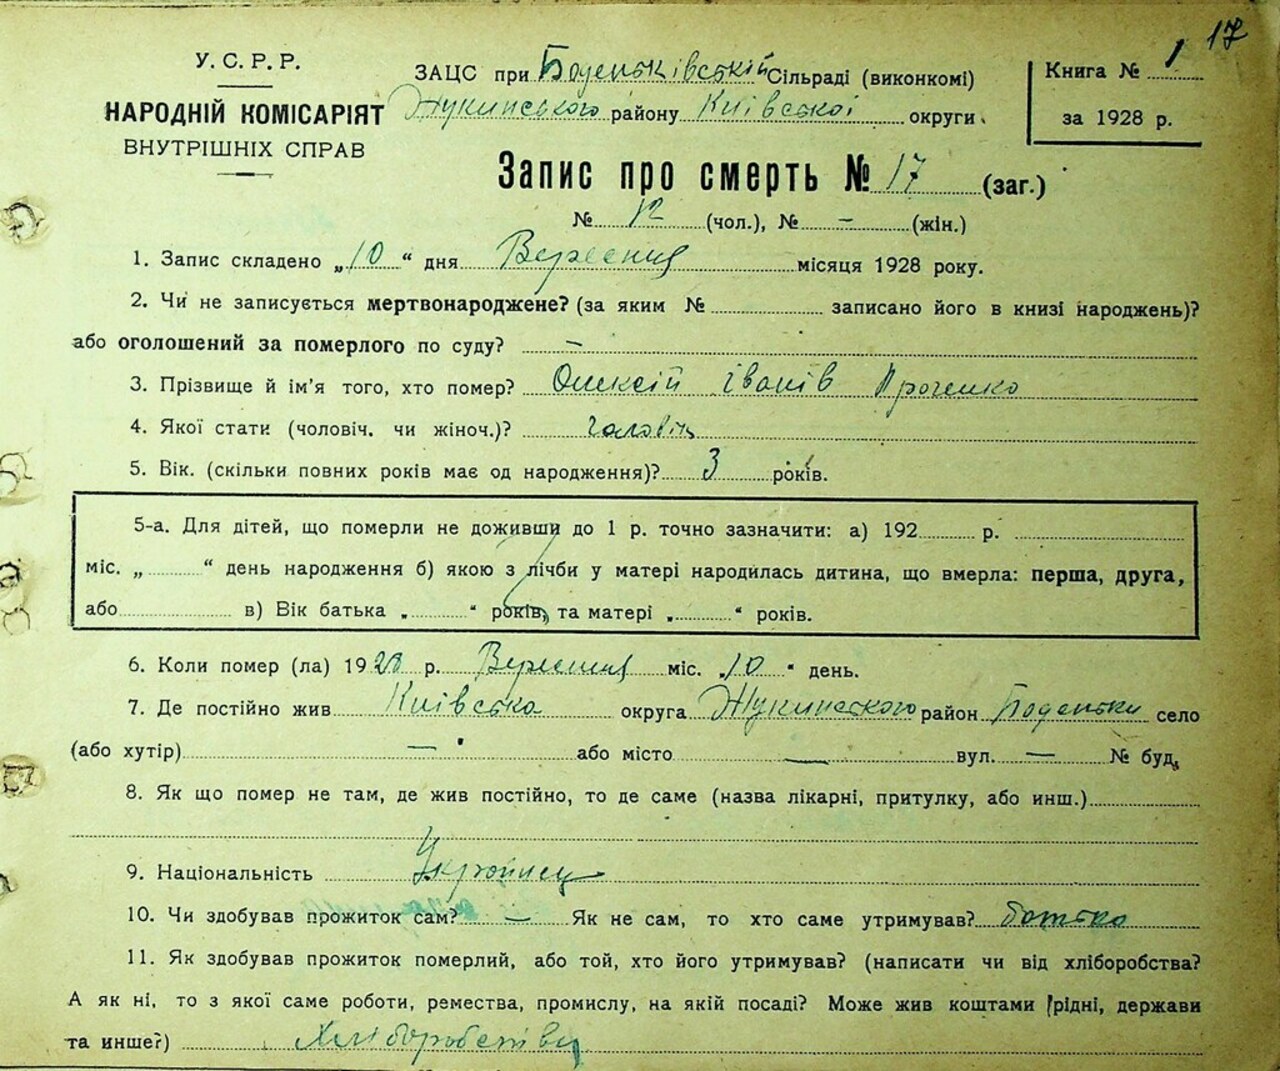 17
У. С. Р. Р.
НАРОДНІЙ КОМІСАРІЯТ
ВНУТРІШНІХ СПРАВ
ЗАЦС при Боденьківській Сільраді (виконкомі)
Жукинського району Київської округи.
Книга № 1
за 1928 р.
Запис про смерть № 17 (заг.)
№ 12 (чол.), № — (жін.)
1. Запис складено „10“ дня Вересня місяця 1928 року.
2. Чи не записується мертвонароджене? (за яким № записано його в книзі народжень)?
або оголошений за померлого по суду? —
3. Прізвище й ім'я того, хто помер? Олексій Іванів Проченко
4. Якої стати (чоловіч. чи жіноч.)? чоловіч
5. Вік. (скільки повних років має од народження)? 3 років.
5-а. Для дітей, що померли не доживши до 1 р. точно зазначити: а) 192 р.
міс. „ “ день народження б) якою з лічби у матері народилась дитина, що вмерла: перша, друга,
або в) Вік батька „ “ років, та матері „ “ років.
6. Коли помер (ла) 1928 р. Вересня міс. „10“ день.
7. Де постійно жив Київська округа Жукинського район Боденьки село
(або хутір) — або місто — вул. — № буд.
8. Як що помер не там, де жив постійно, то де саме (назва лікарні, притулку, або инш.)
9. Національність Українец
10. Чи здобував прожиток сам? — Як не сам, то хто саме утримував? батько
11. Як здобував прожиток померлий, або той, хто його утримував? (написати чи від хліборобства?
А як ні, то з якої саме роботи, ремества, промислу, на якій посаді? Може жив коштами рідні, держави
та инше?) Хліборобством